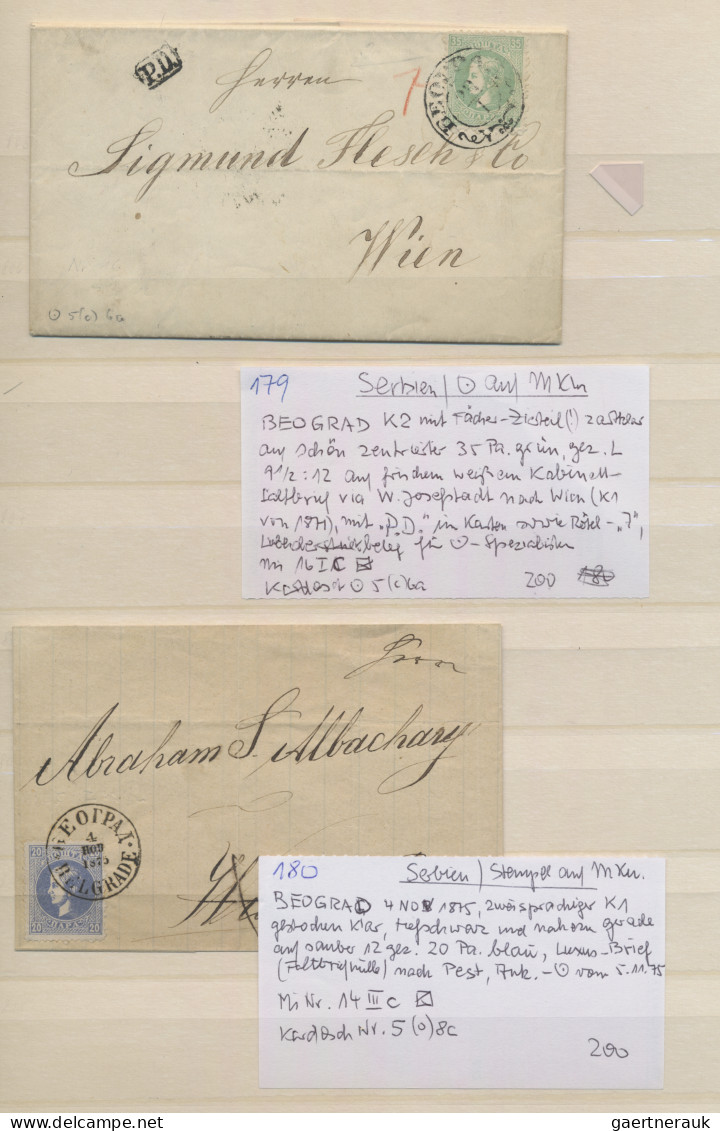 P.D.
35 35
Herren
7
Sigmund Flesch & Co
Wien
⊙ 5(c) 6a
179 Serbien / ⊙ auf MKn
BEOGRAD K2 mit Fächer-Zierteil (!)
auf schön zentrierter 35 Pa. grün, gez. L
9½ : 12 auf frischem weißem Kabinett-
Faltbrief via W. Josefstadt nach Wien (K1
von 1871), mit „P.D." in Kasten sowie Rötel-„7",
für ⊙-Spezialisten
16 I C
⊙ 5(c) 6a 200 180
Herrn
Abraham S. Albachary
БЕОГРАД
4
НОВ
1875
BELGRADE
20 20
20 ПАРА 20
180 Serbien / Stempel auf MKn.
BEOGRAD 4 NOV 1875, zweisprachiger K1
gestochen klar, tiefschwarz und nahezu gerade
auf sauber 12 gez. 20 Pa. blau, Luxus-Brief
(Faltbriefhülle) nach Pest, Ank.-⊙ vom 5.11.75
Mi Nr. 14 III c
Kardosch Nr. 5 (o) 8c
200
gaertnerauk